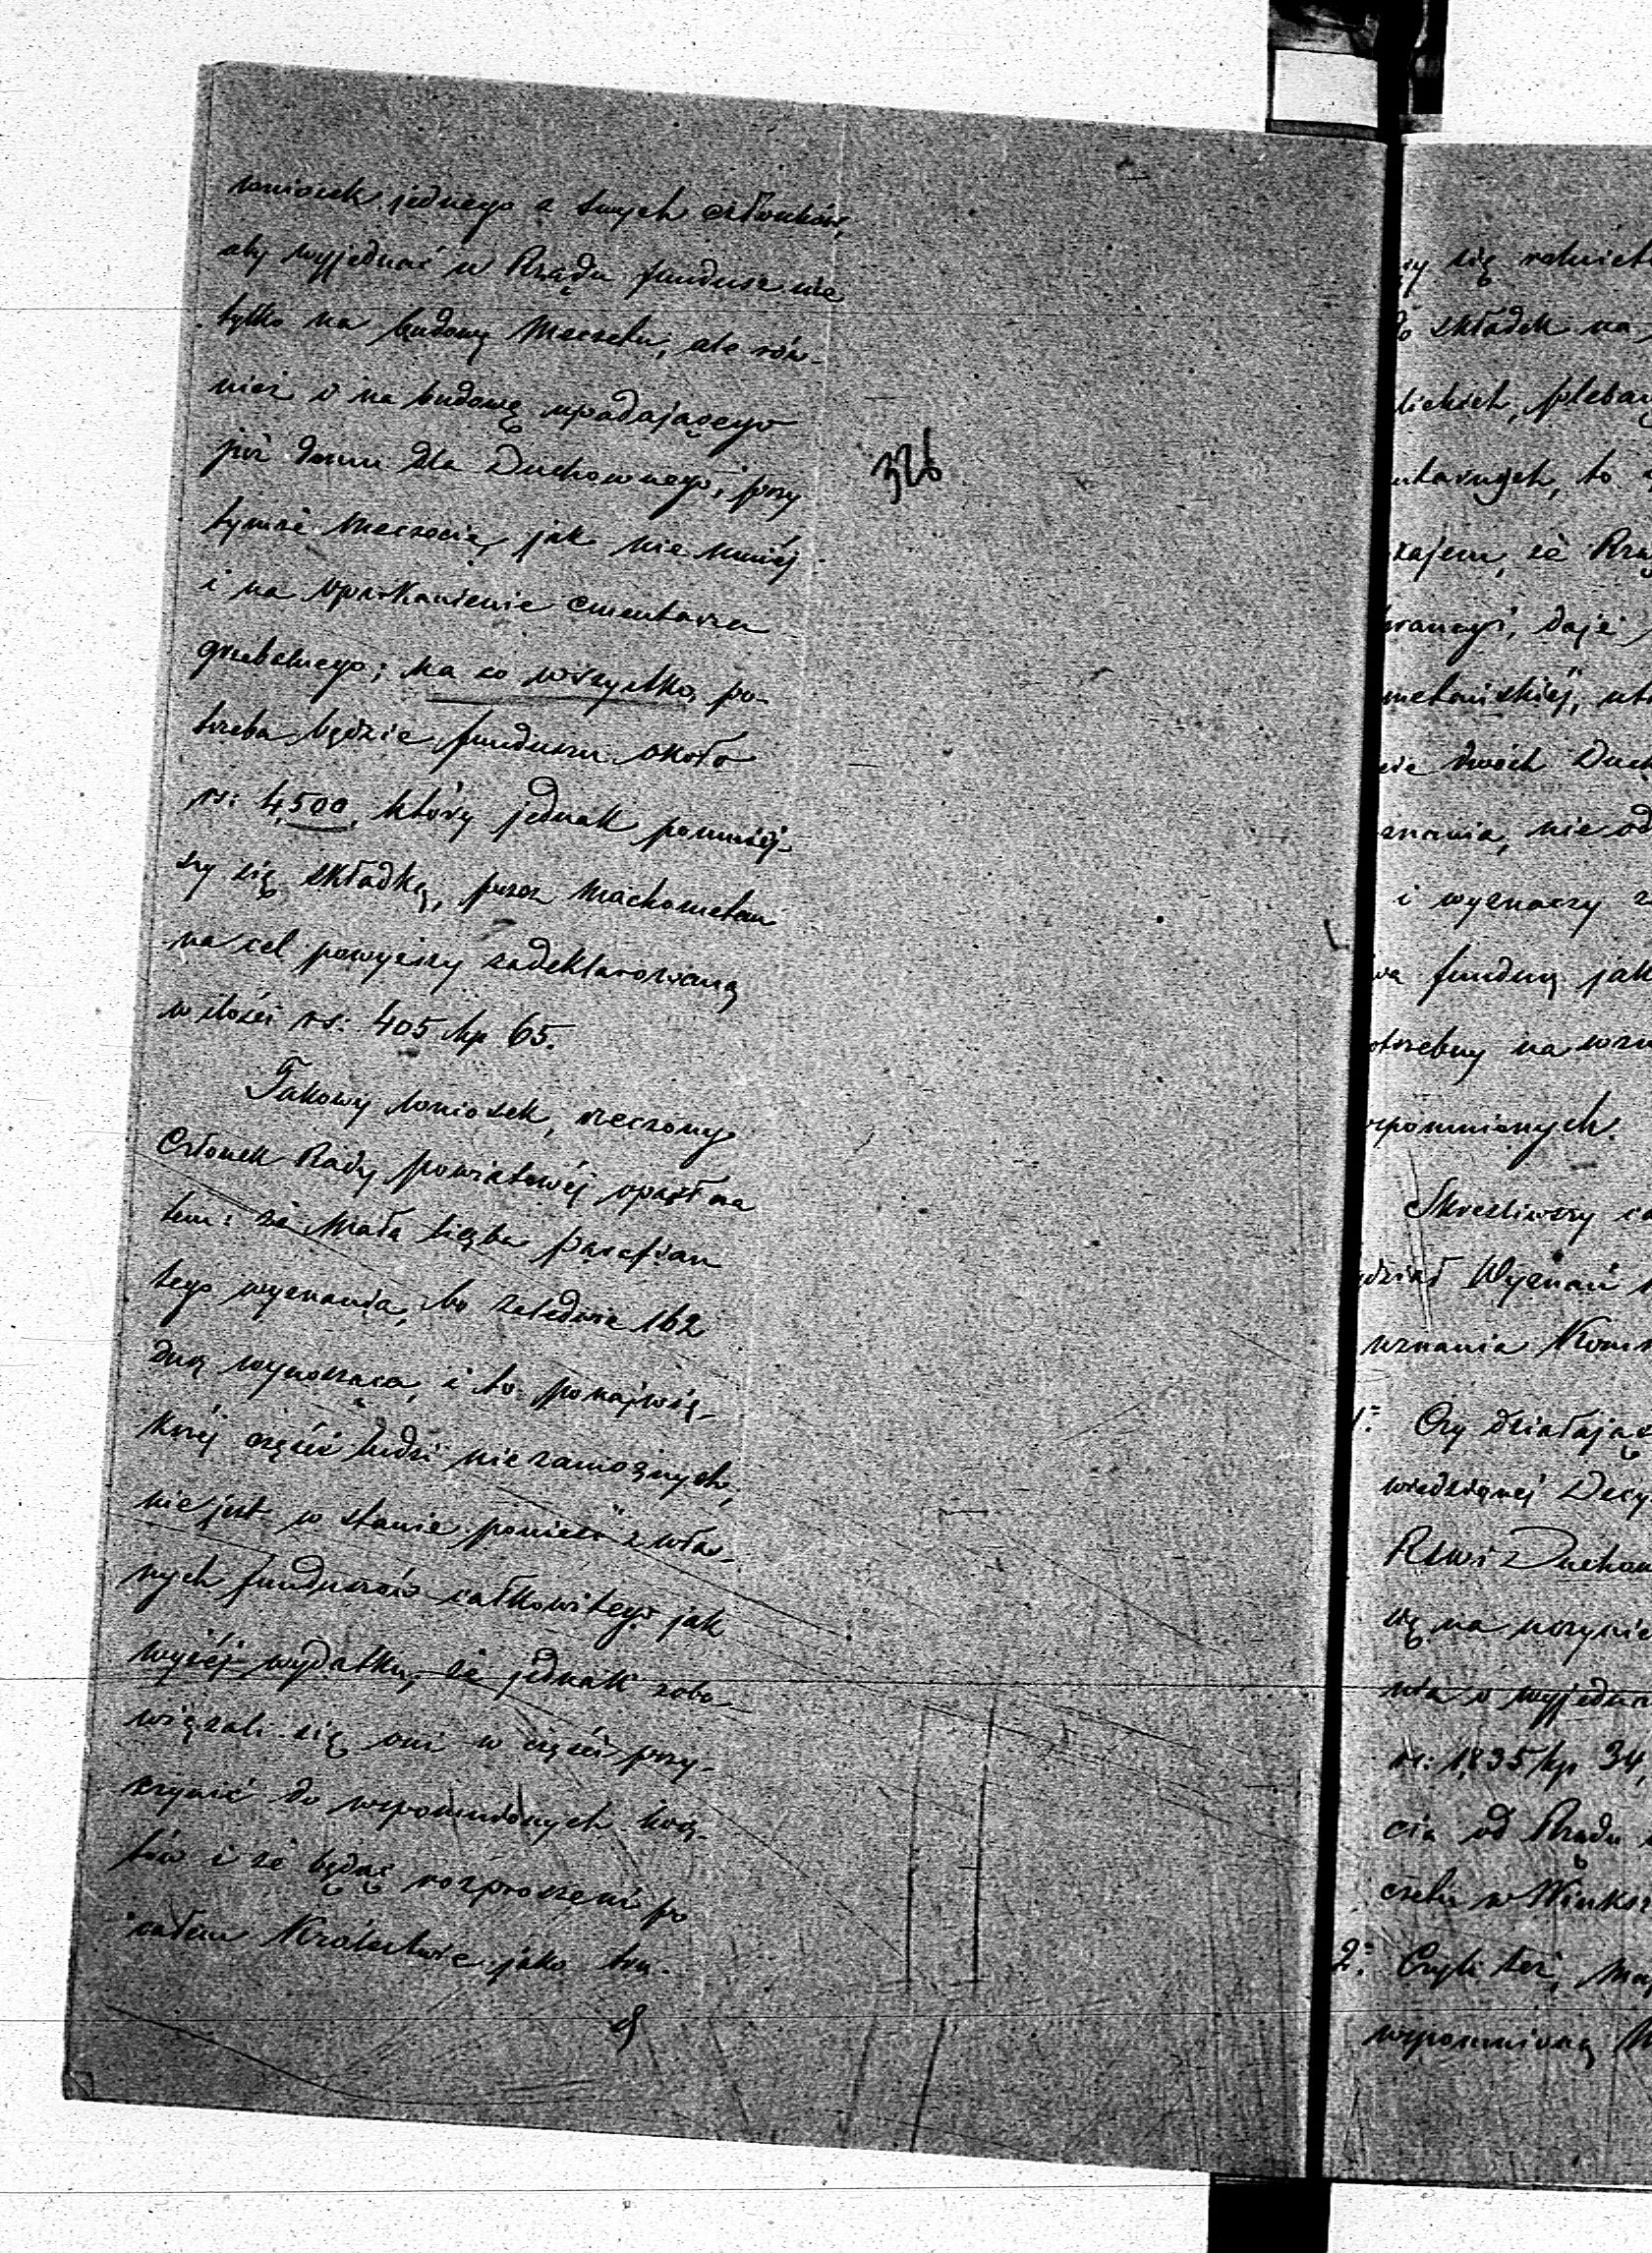 wniosek jednego z swych członków,
aby wyjednać u Rządu fundusz nie
tylko na budowę Meczetu, ale rów-
nież i na budowę upadającego
już domu dla Duchownego, przy
tymże Meczecie, jak nie mniéj
i na oparkanienie cmentarza
grzebalnego; na co wszystko, po-
trzeba będzie funduszu około
rs: 4,500, który jednak pomniéj-
szy się składką, przez Machometan
na cel powyższy zadeklarowaną
w ilości rs: 405 kp 65.
Takowy wniosek, rzeczony
Członek Rady powiatowéj oparł na
tem: że mała liczba parafian
tego wyznania, bo zaledwie 162
dusz wynosząca, i to po najwię-
kszéj części ludzi niezamożnych,
nie jest w stanie ponieść z włas-
nych funduszów całkowitego jak
wyżéj wydatku, że jednak zobo-
wiązali się oni w części przy-
czynić do wspomnionych kosz-
tów i że będąc rozproszeni po
całem Królestwie jako tru-
326
się
składek na
pleba
to
że Rzą
daje
dwóch Duch
nie od
i wyznaczy
fundusz jak
na
wspomnionych.
Skreśliwszy
Wyznań
uznania Kom
1. Czy działając
Decy
Duchow
na
o wyjedna
rs: 1,835 kp 34,
cia od Rządu
w Winksz
2. Czyli też,
wspomnioną